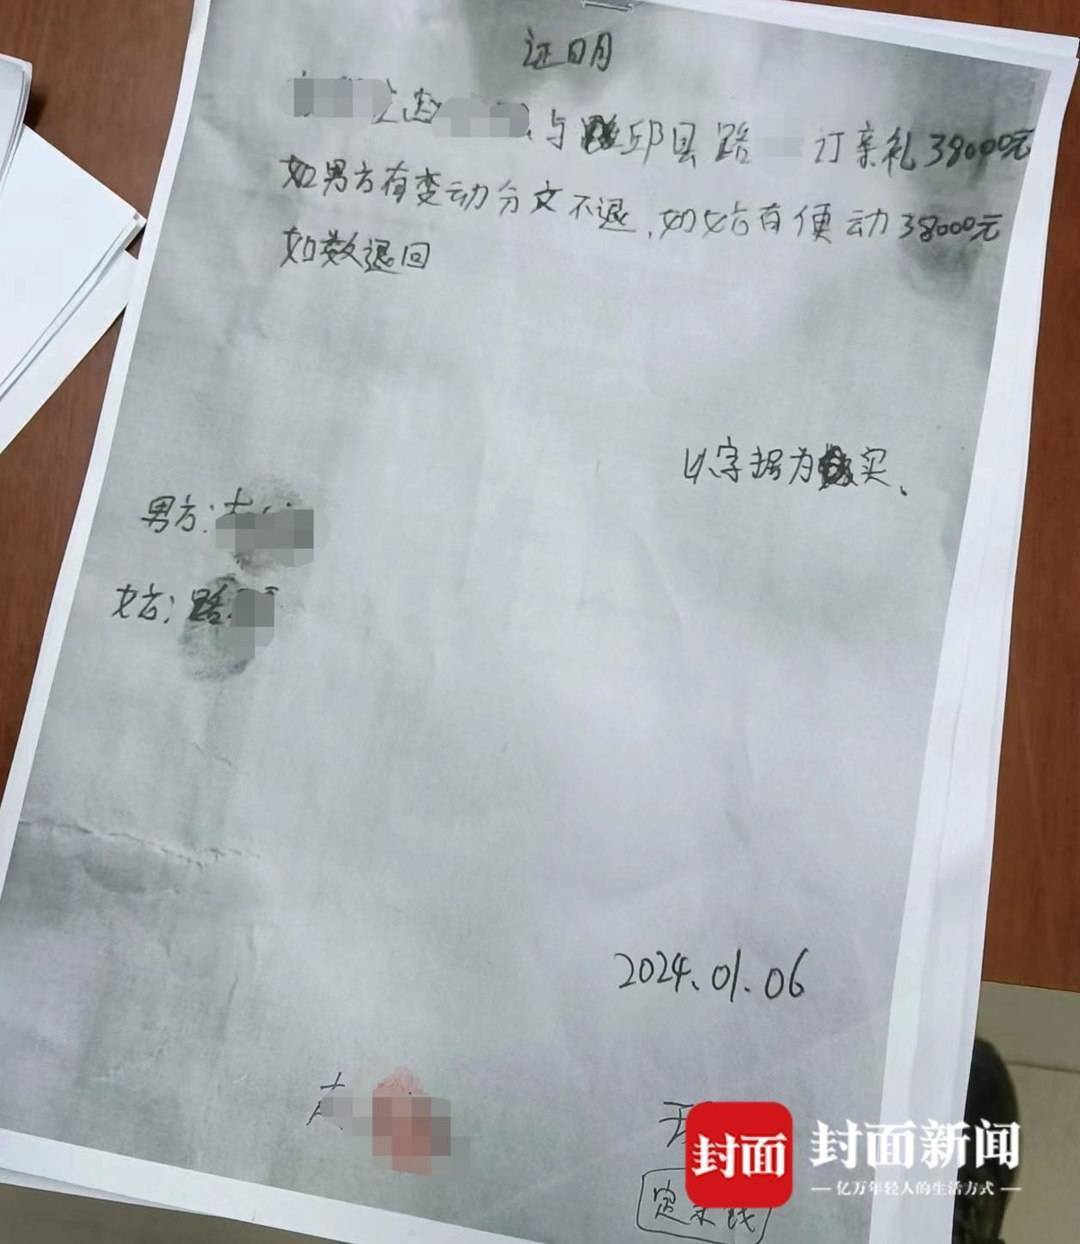 证明
与邱县路 订亲礼38000元
如男方有变动分文不退,如女方有便动38000元
如数退回
以字据为实、
男方:
女方:路
2024.01.06
封面
封面新闻
亿万年轻人的生活方式